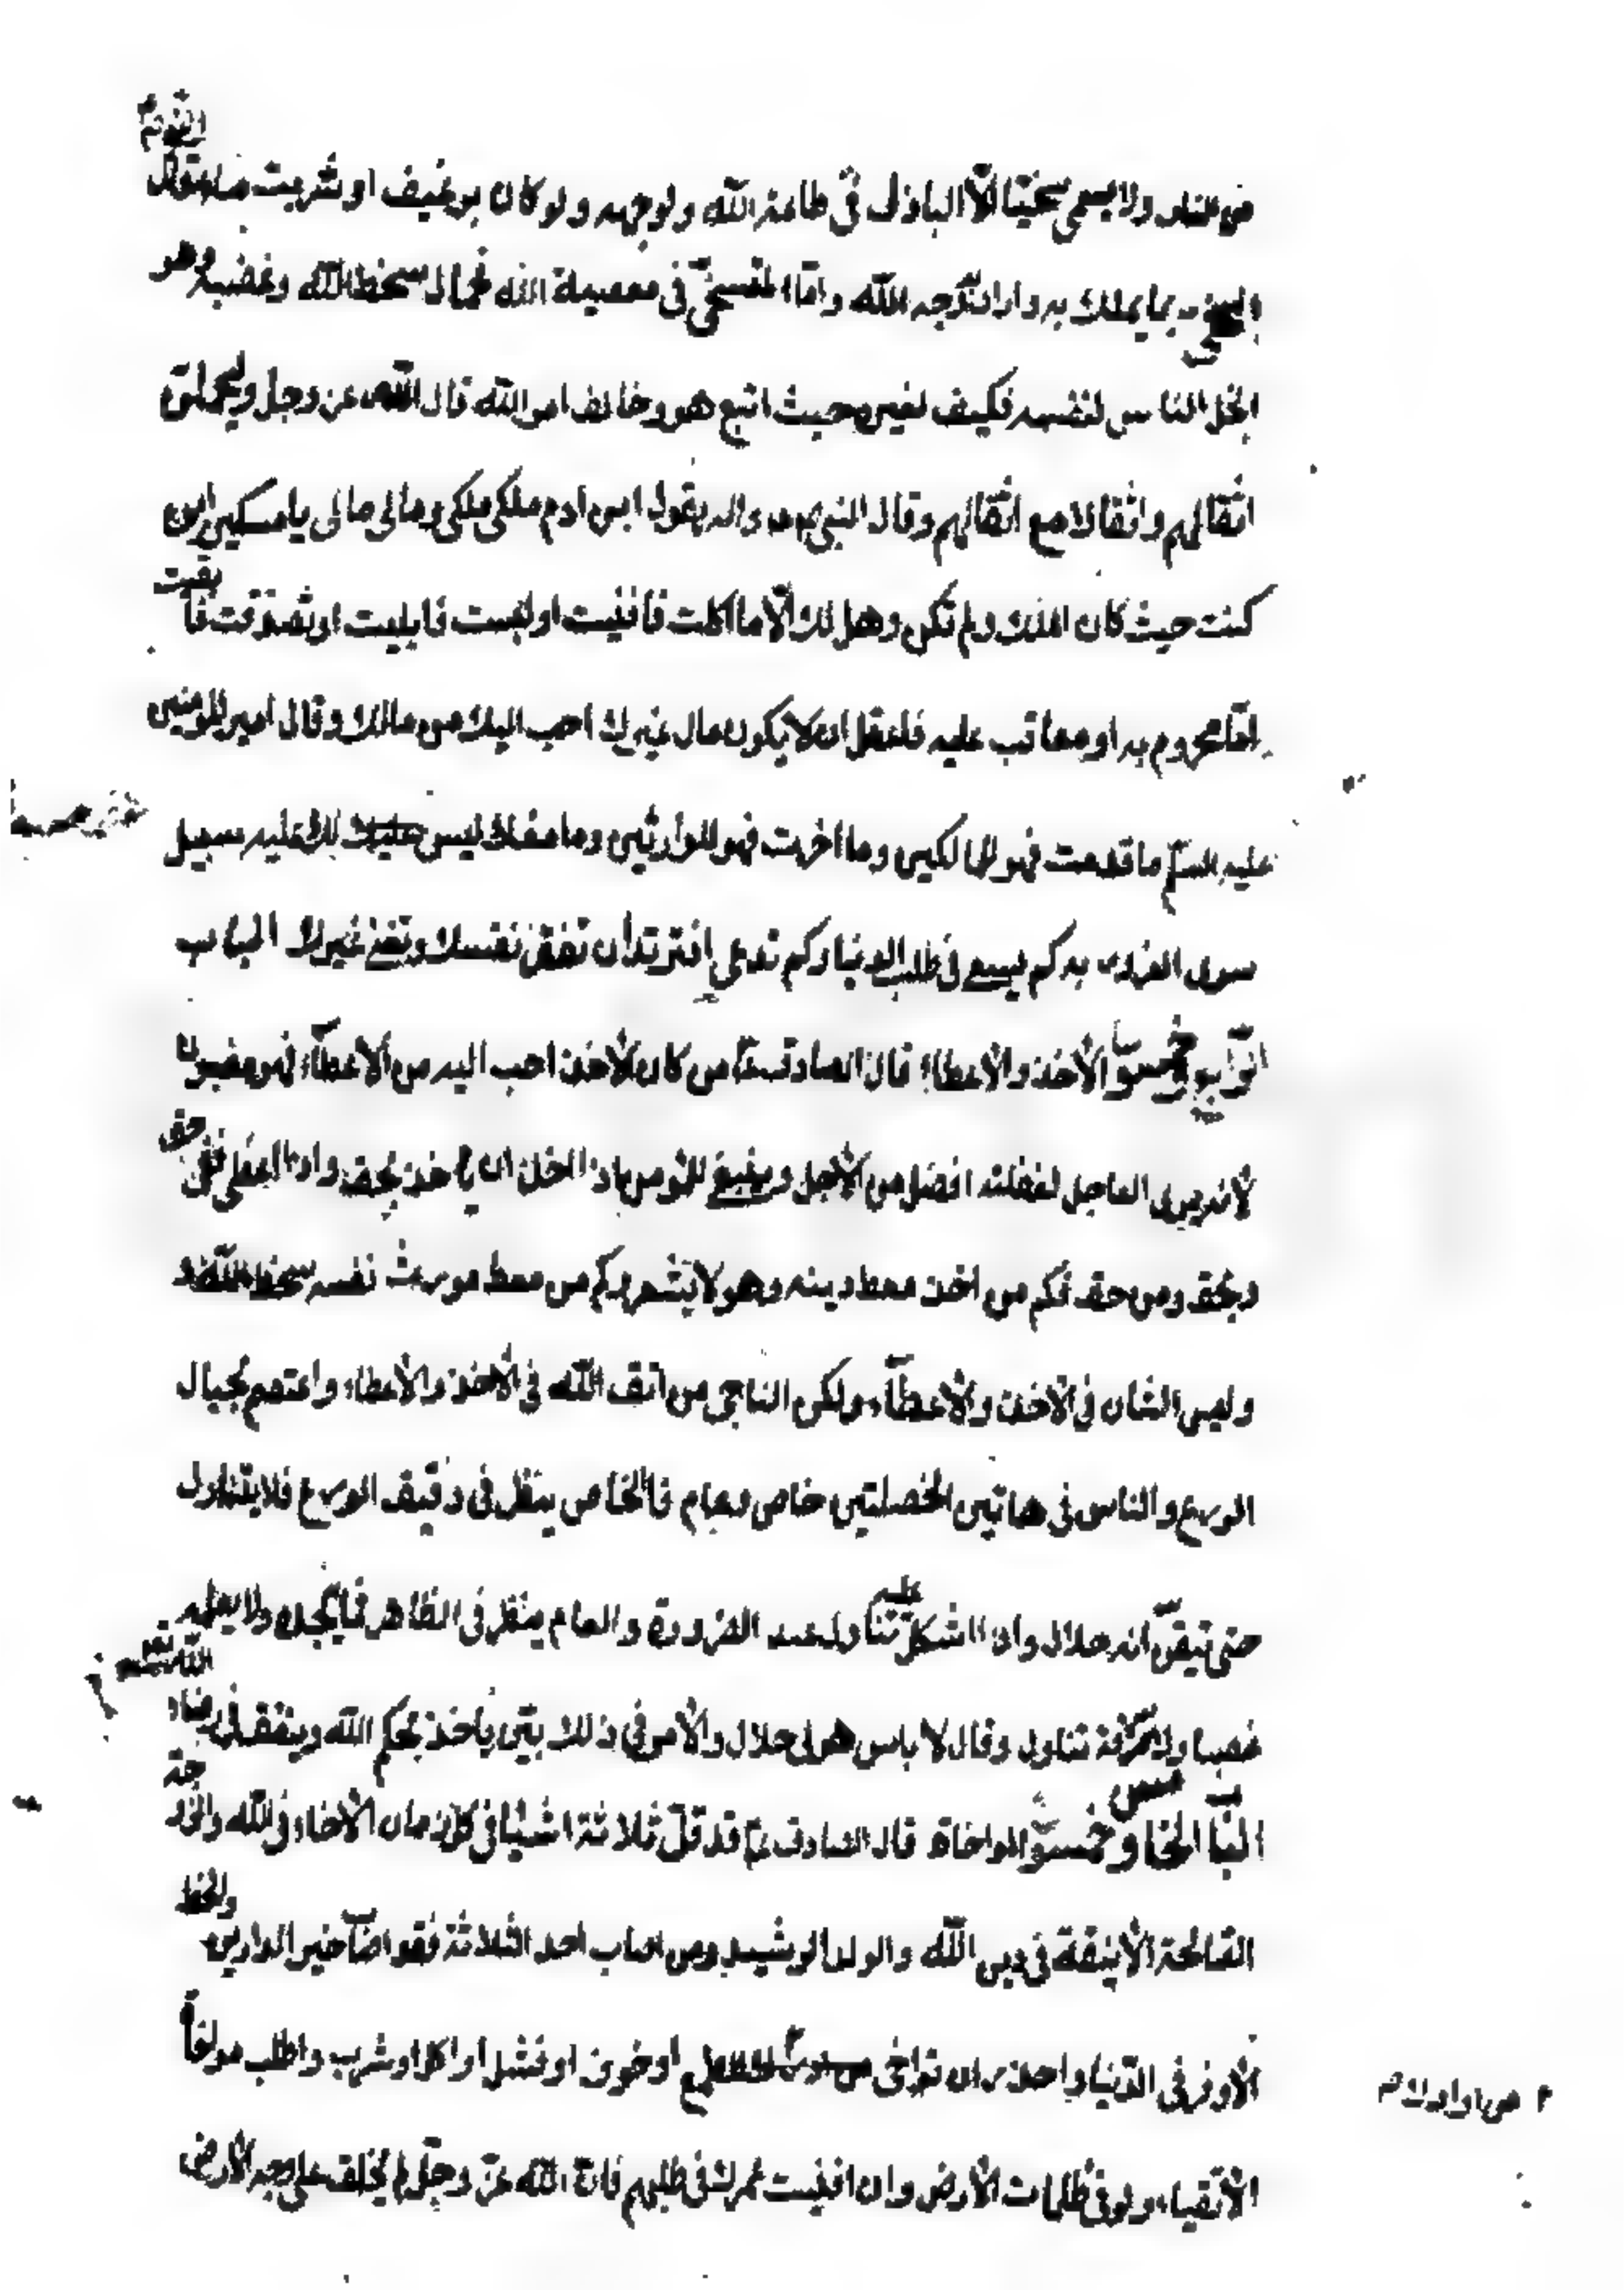 من عناد ولا يسمى سخيّا الّا الباذل فى طاعة اللّه ولوجهه ولو كان برغيف او شربت ماء قال
السخى بما يملك به واراد وجه اللّه وامّا المتسخّى فى معصية اللّه فحمال سخط اللّه وغضبه وهو
ابخل الناس لنفسه فكيف لغيره حيث اتبع هويه وخالف امر اللّه قال اللّه عز وجل وليحملنّ
اثقالهم واثقالا مع اثقالهم وقال النبى ص واله يقول ابن ادم ملكى ملكى ومالى مالى يا مسكين اين
كنت حيث كان الملك ولم تكن وهل لك الّا ما اكلت فافنيت او لبست فابليت او تصدّقت فابقيت
امّا مرحوم به او معاقب عليه فاعقل ان لا يكون مال غيرك احب اليك من مالك وقال امير المؤمنين
عليه السّلم ما قدمت فهو للمالكين وما اخرت فهو للوارثين وما معك ليس لك عليه سبيل
سوى الغرور به كم تسعى فى طلب الدنيا وكم تدعى افتريد ان تفقر نفسك وتغنى غيرك الباب
الرّابع وخمسون الأخذ والأعطاء قال الصادق ع من كان الأخذ احب اليه من الأعطاء فهو مغبون
لأنه يرى العاجل لغفلته افضل من الأجل وينبغى للمؤمن اذا اخذ ان ياخذ بحق واذا اعطى ففى حق
وبحق ومن حق فكم من اخذ معط دينه وهو لا يشعر وكم من معط مورث نفسه سخط اللّه
وليس الشان فى الأخذ والأعطاء ولكن الناجى من اتقى اللّه فى الأخذ والأعطاء واعتصم بحبال
الورع والناس فى هاتين الخصلتين خاص وعام فالخاص ينظر فى دقيق الورع فلا يتناول
حتى تيقّن انه حلال واذا اشكل عليه تناول عند الضرورة والعام ينظر فى الظاهر فما لم يجده ولا يعلمه
غصبا ولا سرقة تناول وقال لا باس هو لى حلال والأمر فى ذلك بيّن ياخذ بحكم اللّه وينفق فى رضاء اللّه
الباب الخامس وخمسون المواخاة قال الصادق ع قد قلّ ثلاثة اشيئا فى كل زمان الأخاء فى اللّه والزوجة
الصالحة الأنيقة فى دين اللّه والولد الرشيد ومن اصاب احد الثلاثة فقد اصاب خير الدارين والحظ
الأوفر فى الدّنيا واحذر ان تواخى من ارادك لطمع او خوف او فشل او اكل او شرب واطلب مواخاة
الأتقياء ولو فى ظلمات الأرض وان افنيت عمرك فى طلبهم فانّ اللّه عزّ وجلّ لم يخلق على وجه الأرض